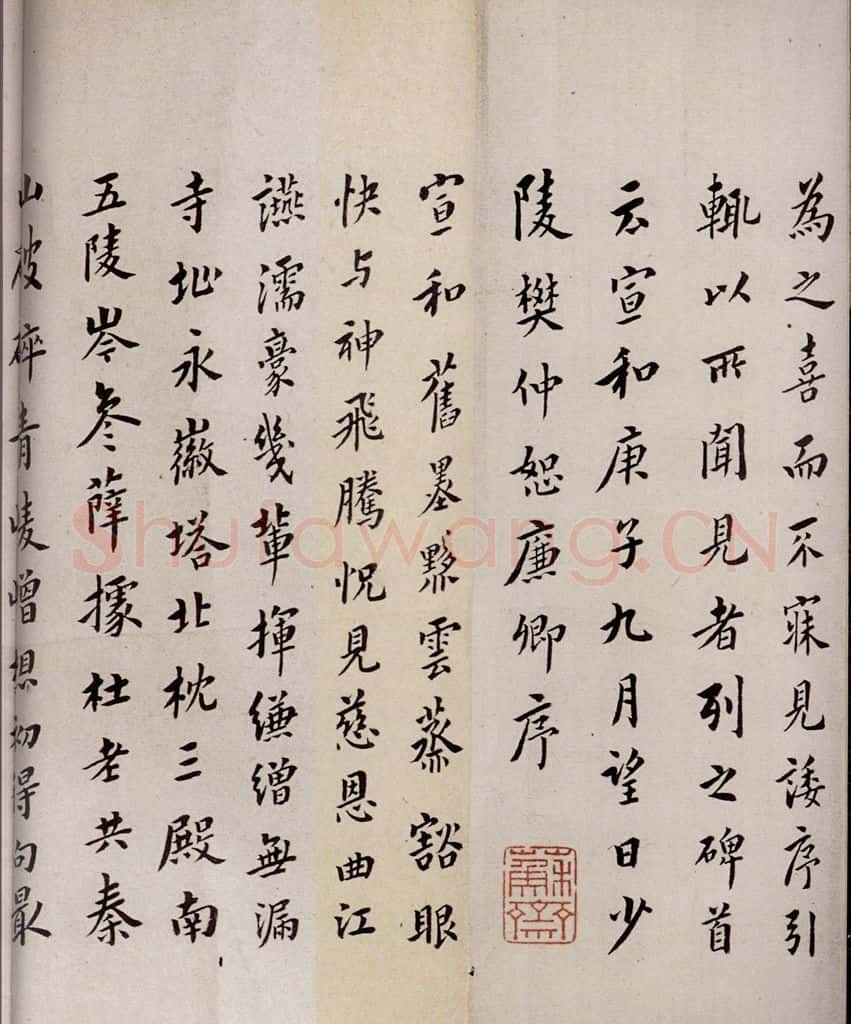 為之喜而不寐見諉序引
輒以所聞見者列之碑首
云宣和庚子九月望日少
陵樊仲恕廉卿序
蘇齋
宣和舊墨黟雲蒸豁眼
快与神飛騰怳見慈恩曲江
讌濡豪幾輩揮縑繒無漏
寺址永徽塔北枕三殿南
五陵岑參薛據杜老共秦
山破碎青崚嶒想初得句最
Shufawang.CN